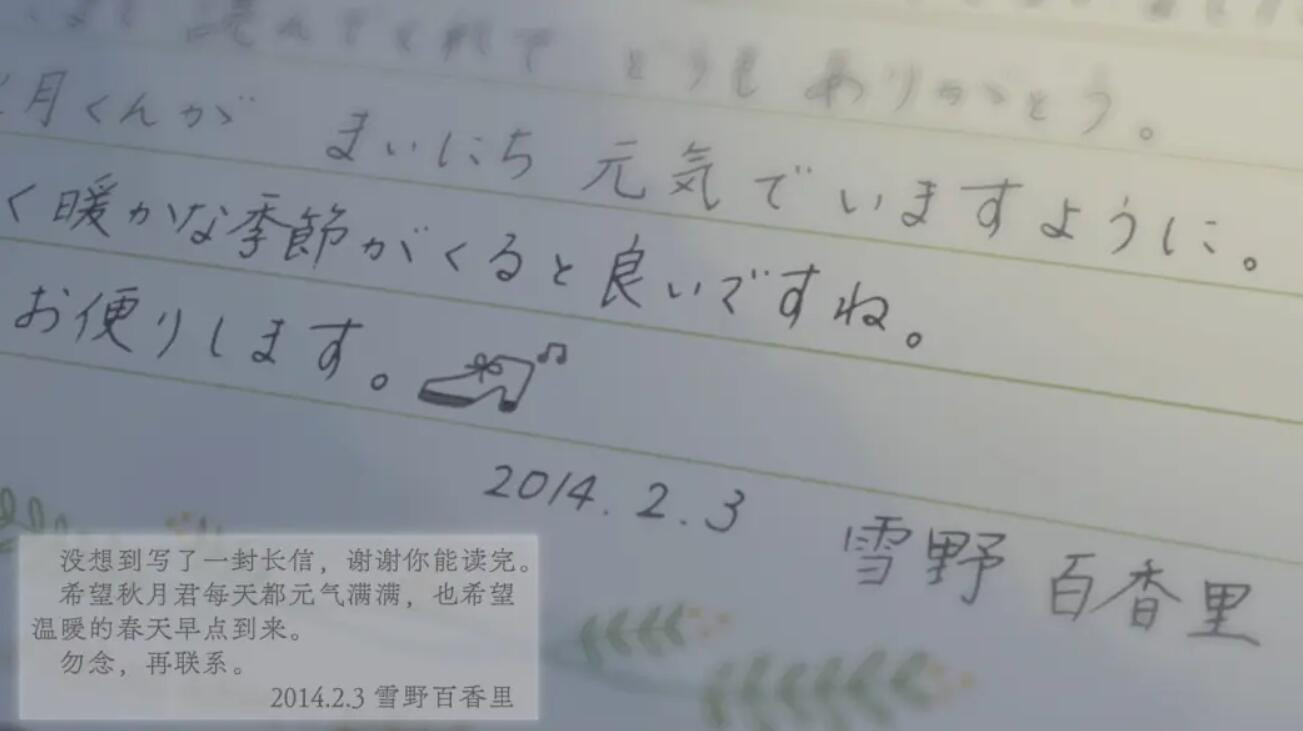 読んでくれて どうもありがとう。
月くんが まいにち 元気でいますように。
く暖かな季節がくると良いですね。
お便りします。
2014.2.3 雪野 百香里
没想到写了一封长信，谢谢你能读完。
希望秋月君每天都元气满满，也希望
温暖的春天早点到来。
勿念，再联系。
2014.2.3 雪野百香里